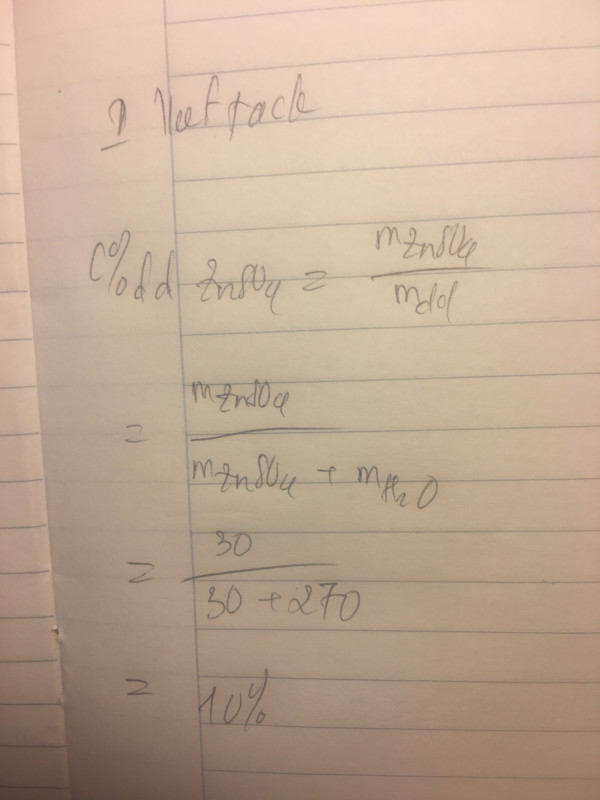 C%dd ZnSO4 = mZnSO4 / mdd
= mZnSO4 / mZnSO4 + mH2O
= 30 / 30 + 270
= 10%